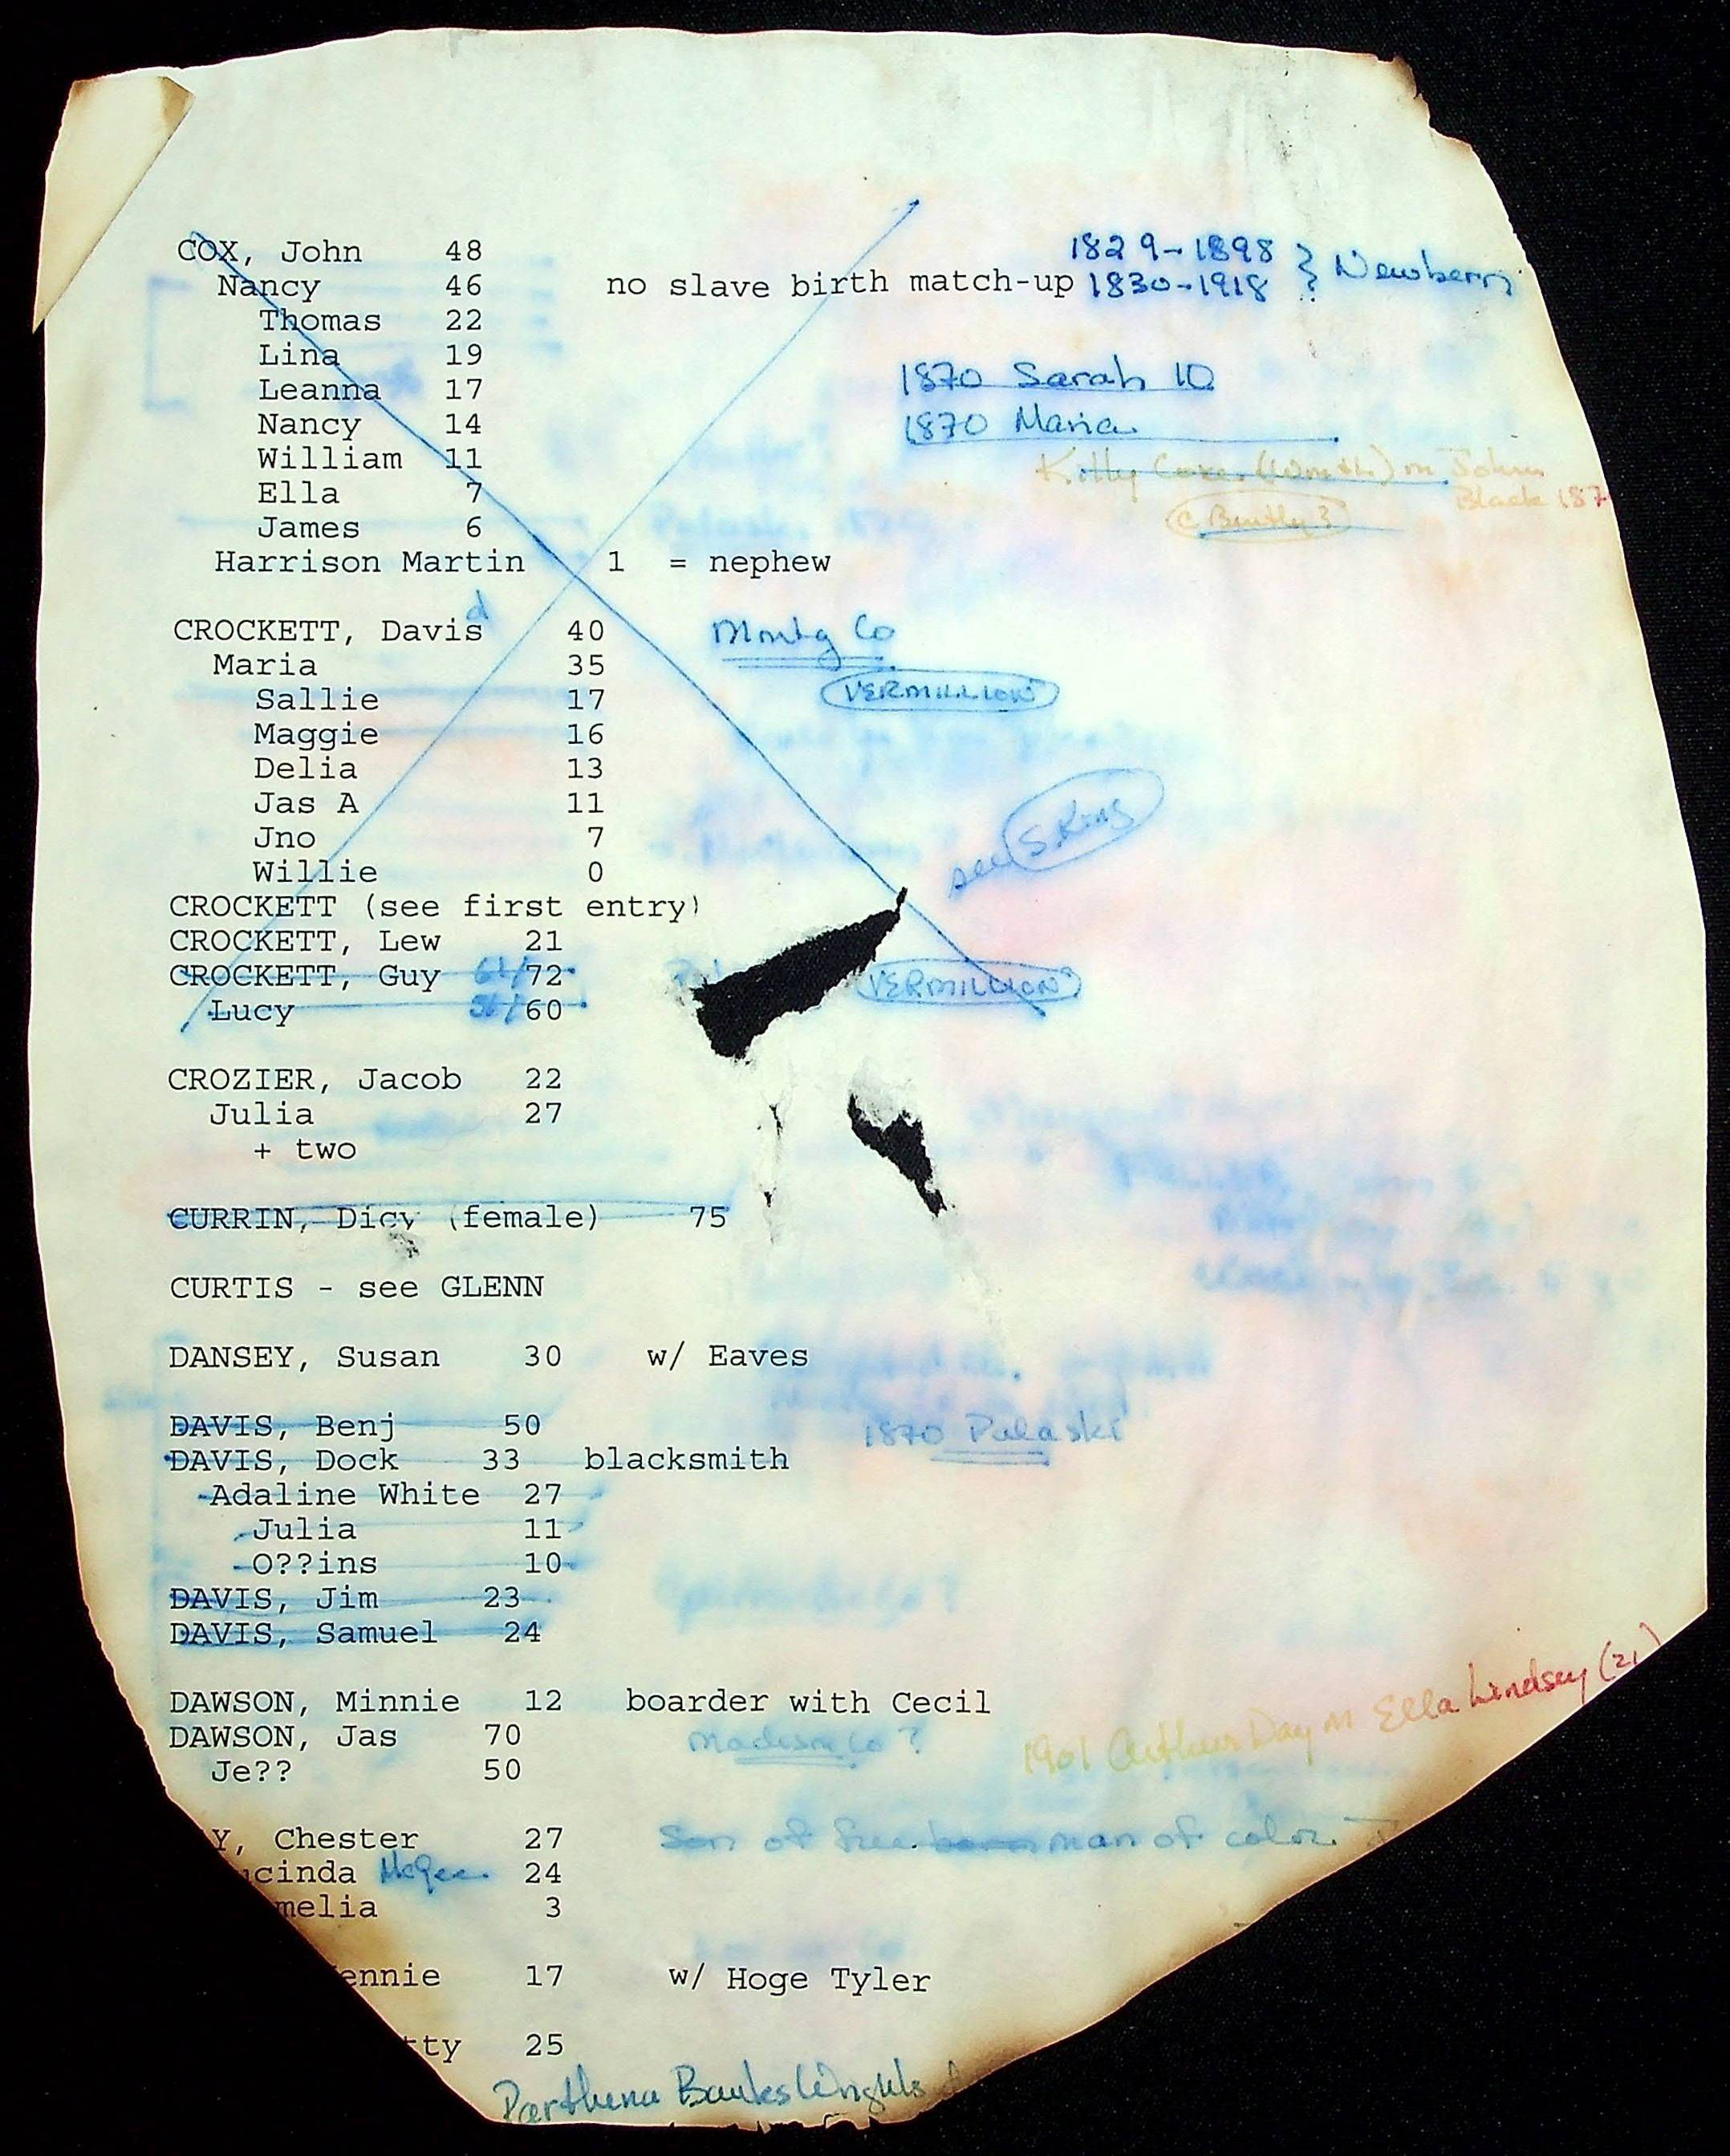 COX, John 48 1829-1898 } Newbern
Nancy 46 no slave birth match-up 1830-1918
Thomas 22
Lina 19
Leanna 17 1870 Sarah 10
Nancy 14 1870 Maria
William 11 Kitty (Wmth) m John
Ella 7 Black 187
James 6
Harrison Martin 1 = nephew
d
CROCKETT, Davis 40 Montg Co
Maria 35
Sallie 17 VERMILLION
Maggie 16
Delia 13
Jas A 11
Jno 7 see S. King
Willie 0
CROCKETT (see first entry)
CROCKETT, Lew 21
CROCKETT, Guy 61/72 VERMILLION
Lucy 56/60
CROZIER, Jacob 22
Julia 27
+ two
CURRIN, Dicy (female) 75
CURTIS - see GLENN
DANSEY, Susan 30 w/ Eaves
DAVIS, Benj 50 1870 Pulaski
DAVIS, Dock 33 blacksmith
Adaline White 27
Julia 11
O??ins 10
DAVIS, Jim 23
DAVIS, Samuel 24
DAWSON, Minnie 12 boarder with Cecil
DAWSON, Jas 70 Madison Co ? 1901 Arthur Day m Ella Lindsey (21)
Je?? 50
Y, Chester 27 Son of free born man of color
ucinda McGee 24
melia 3
ennie 17 w/ Hoge Tyler
tty 25
Parthena Banks Wrights